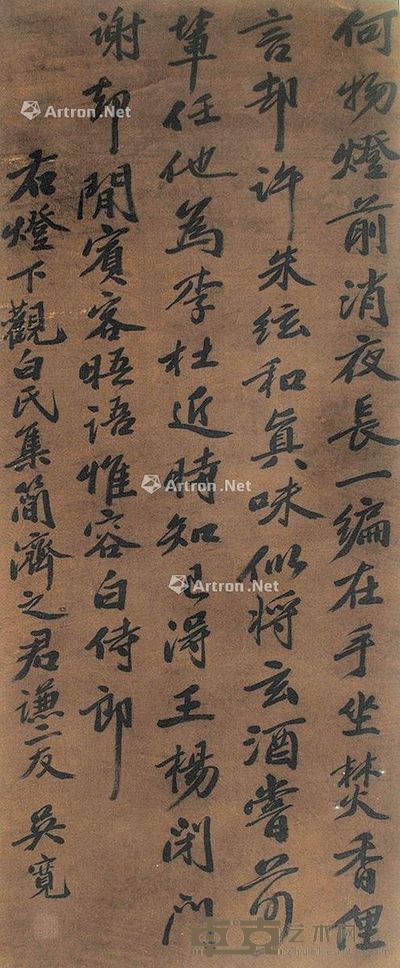 何物燈前消夜長一編在手坐焚香俚
言却許朱絃和真味似将玄酒嘗前
輩任他為李杜近時知得王楊閉門
謝却閒賓客晤語惟容白侍郎
右燈下觀白氏集簡濟之君謙二友 吳寬
Artron.Net
Artron.Net
Artron.Net
艺术网